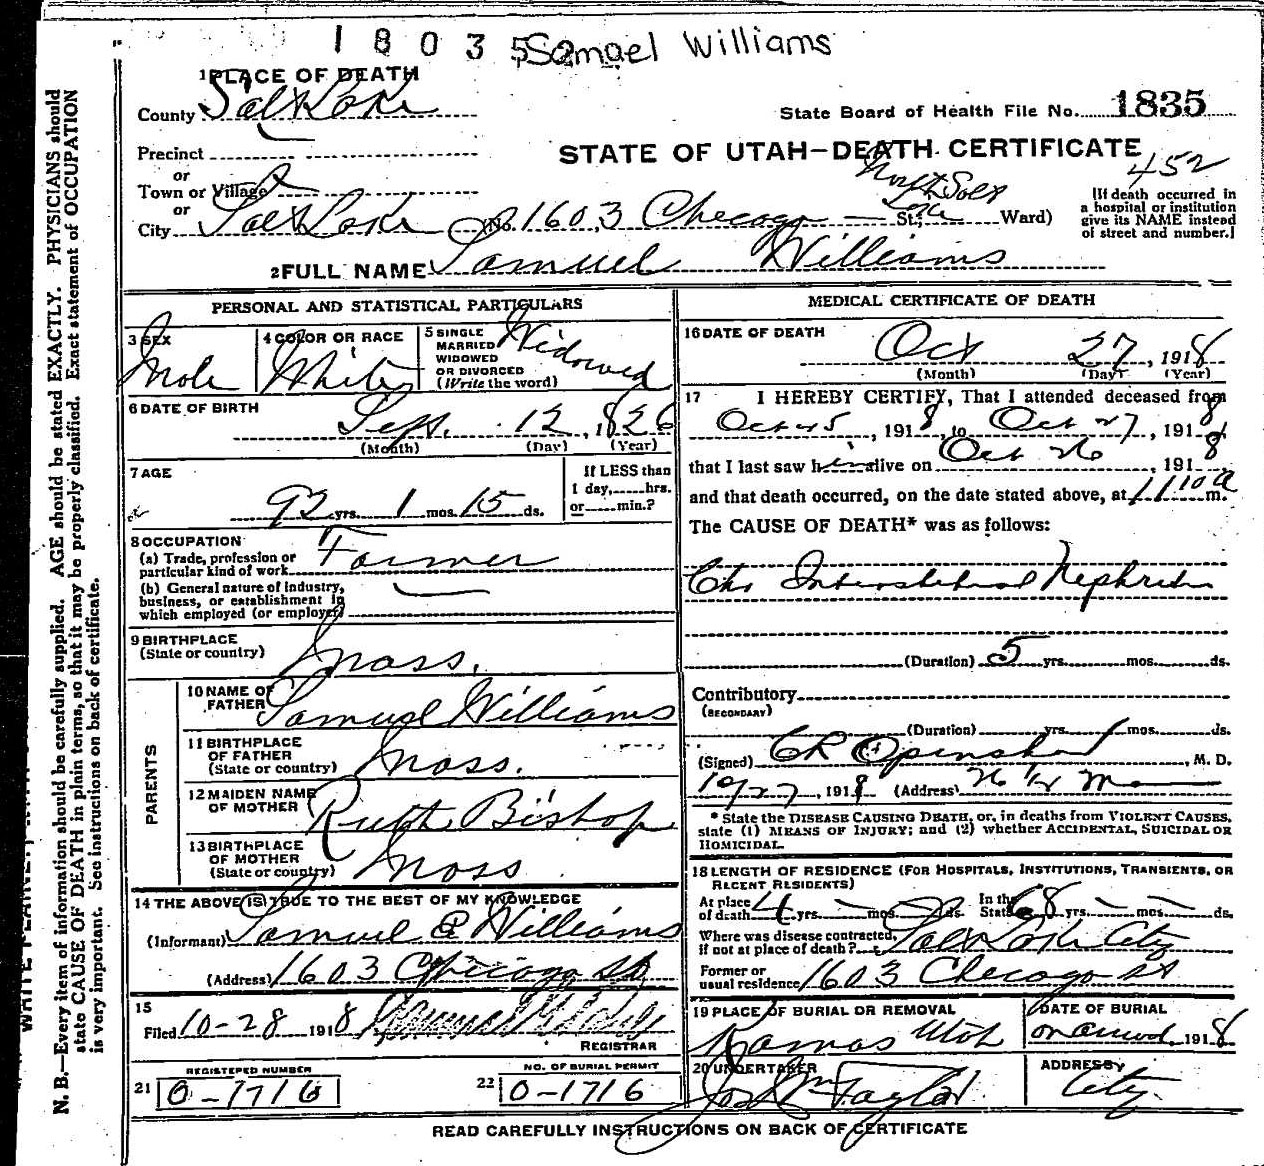 1 8 0 3 5 2 Samael Williams
1 PLACE OF DEATH
County Salt Lake
State Board of Health File No. 1835
Precinct
STATE OF UTAH—DEATH CERTIFICATE
or
452
Town or Village
North Salt Lake
or
City Salt Lake No. 1603 Checago — St.; Ward)
[If death occurred in a hospital or institution give its NAME instead of street and number.]
2 FULL NAME Samuel Williams
PERSONAL AND STATISTICAL PARTICULARS
3 SEX Male
4 COLOR OR RACE White
5 SINGLE MARRIED WIDOWED OR DIVORCED (Write the word) Widowed
6 DATE OF BIRTH
Sept. 12, 1826
(Month) (Day) (Year)
7 AGE
92 yrs. 1 mos. 15 ds.
If LESS than 1 day, hrs. or min.?
8 OCCUPATION
(a) Trade, profession or particular kind of work Farmer
(b) General nature of industry, business, or establishment in which employed (or employer) —
9 BIRTHPLACE
(State or country) Mass.
PARENTS
10 NAME OF FATHER Samuel Williams
11 BIRTHPLACE OF FATHER (State or country) Mass.
12 MAIDEN NAME OF MOTHER Ruth Bishop
13 BIRTHPLACE OF MOTHER (State or country) Mass
14 THE ABOVE IS TRUE TO THE BEST OF MY KNOWLEDGE
(Informant) Samuel E Williams
(Address) 1603 Chicago St
15
Filed 10-28 1918
REGISTRAR
REGISTERED NUMBER
21 0-1716
NO. OF BURIAL PERMIT
22 0-1716
MEDICAL CERTIFICATE OF DEATH
16 DATE OF DEATH
Oct 27, 1918
(Month) (Day) (Year)
17 I HEREBY CERTIFY, That I attended deceased from
Oct 5, 1918, to Oct 27, 1918
that I last saw him alive on Oct 26, 1918
and that death occurred, on the date stated above, at 1110 a m.
The CAUSE OF DEATH* was as follows:
Chr Interstitial Nephritis
(Duration) 5 yrs. mos. ds.
Contributory
(SECONDARY)
(Duration) yrs. mos. ds.
(Signed) CR Openshaw, M. D.
10/27, 1918 (Address)
* State the DISEASE CAUSING DEATH, or, in deaths from VIOLENT CAUSES,
state (1) MEANS OF INJURY; and (2) whether ACCIDENTAL, SUICIDAL OR
HOMICIDAL.
18 LENGTH OF RESIDENCE (FOR HOSPITALS, INSTITUTIONS, TRANSIENTS, OR
RECENT RESIDENTS)
At place of death 4 yrs. — mos. ds. In the State 68 yrs. — mos. — ds.
Where was disease contracted, if not at place of death? Salt Lake City
Former or usual residence 1603 Checago St
19 PLACE OF BURIAL OR REMOVAL
Kamas Utah
DATE OF BURIAL
1918
20 UNDERTAKER
Jos Wm Taylor
ADDRESS
City
READ CAREFULLY INSTRUCTIONS ON BACK OF CERTIFICATE
N. B.—Every item of information should be carefully supplied. AGE should be stated EXACTLY. PHYSICIANS should
state CAUSE OF DEATH in plain terms, so that it may be properly classified. Exact statement of OCCUPATION
is very important. See instructions on back of certificate.